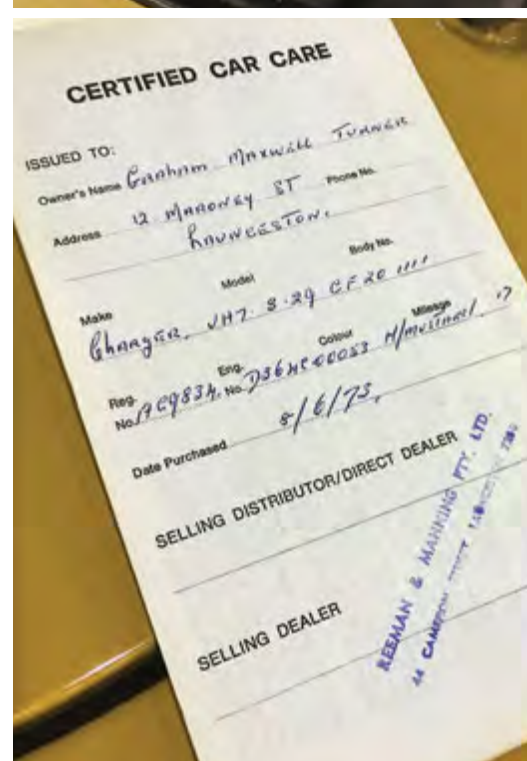 CERTIFIED CAR CARE
ISSUED TO:
Owner's Name Graham Maxwell Turner
Address 12 Maroney St Phone No.
Launceston.
Make Model Body No.
Charger. VH7. S.29 CF20 1111
Reg. No. Eng. No. Colour Mileage
M/Mustard. 17
Date Purchased 8/6/73.
SELLING DISTRIBUTOR/DIRECT DEALER
SELLING DEALER
REEMAN & MANNING PTY. LTD.
44 CAMERON STREET LAUNCESTON 7250